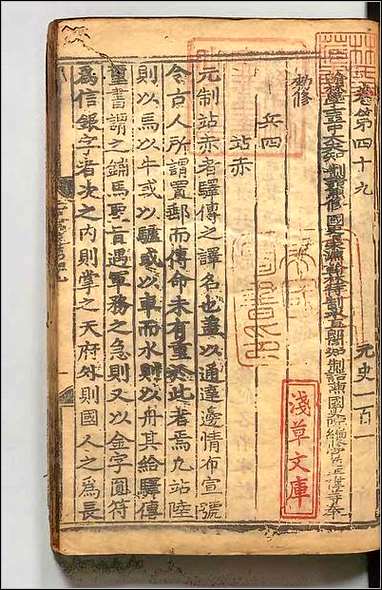 志卷第四十九 元史一百一
翰林學士亞中大夫知制誥兼修國史宋濂翰林待制承直郎同知制誥兼國史院編修官王褘等奉
勅修
兵四
站赤
元制站赤者驛傳之譯名也蓋以通達邊情布宣號
令古人所謂置郵而傳命未有重於此者焉凡站陸
則以馬以牛或以驢或以車而水則以舟其給驛傳
璽書謂之鋪馬聖旨遇軍務之急則又以金字圓符
爲信銀字者次之内則掌之天府外則國人之爲長
淺草文庫